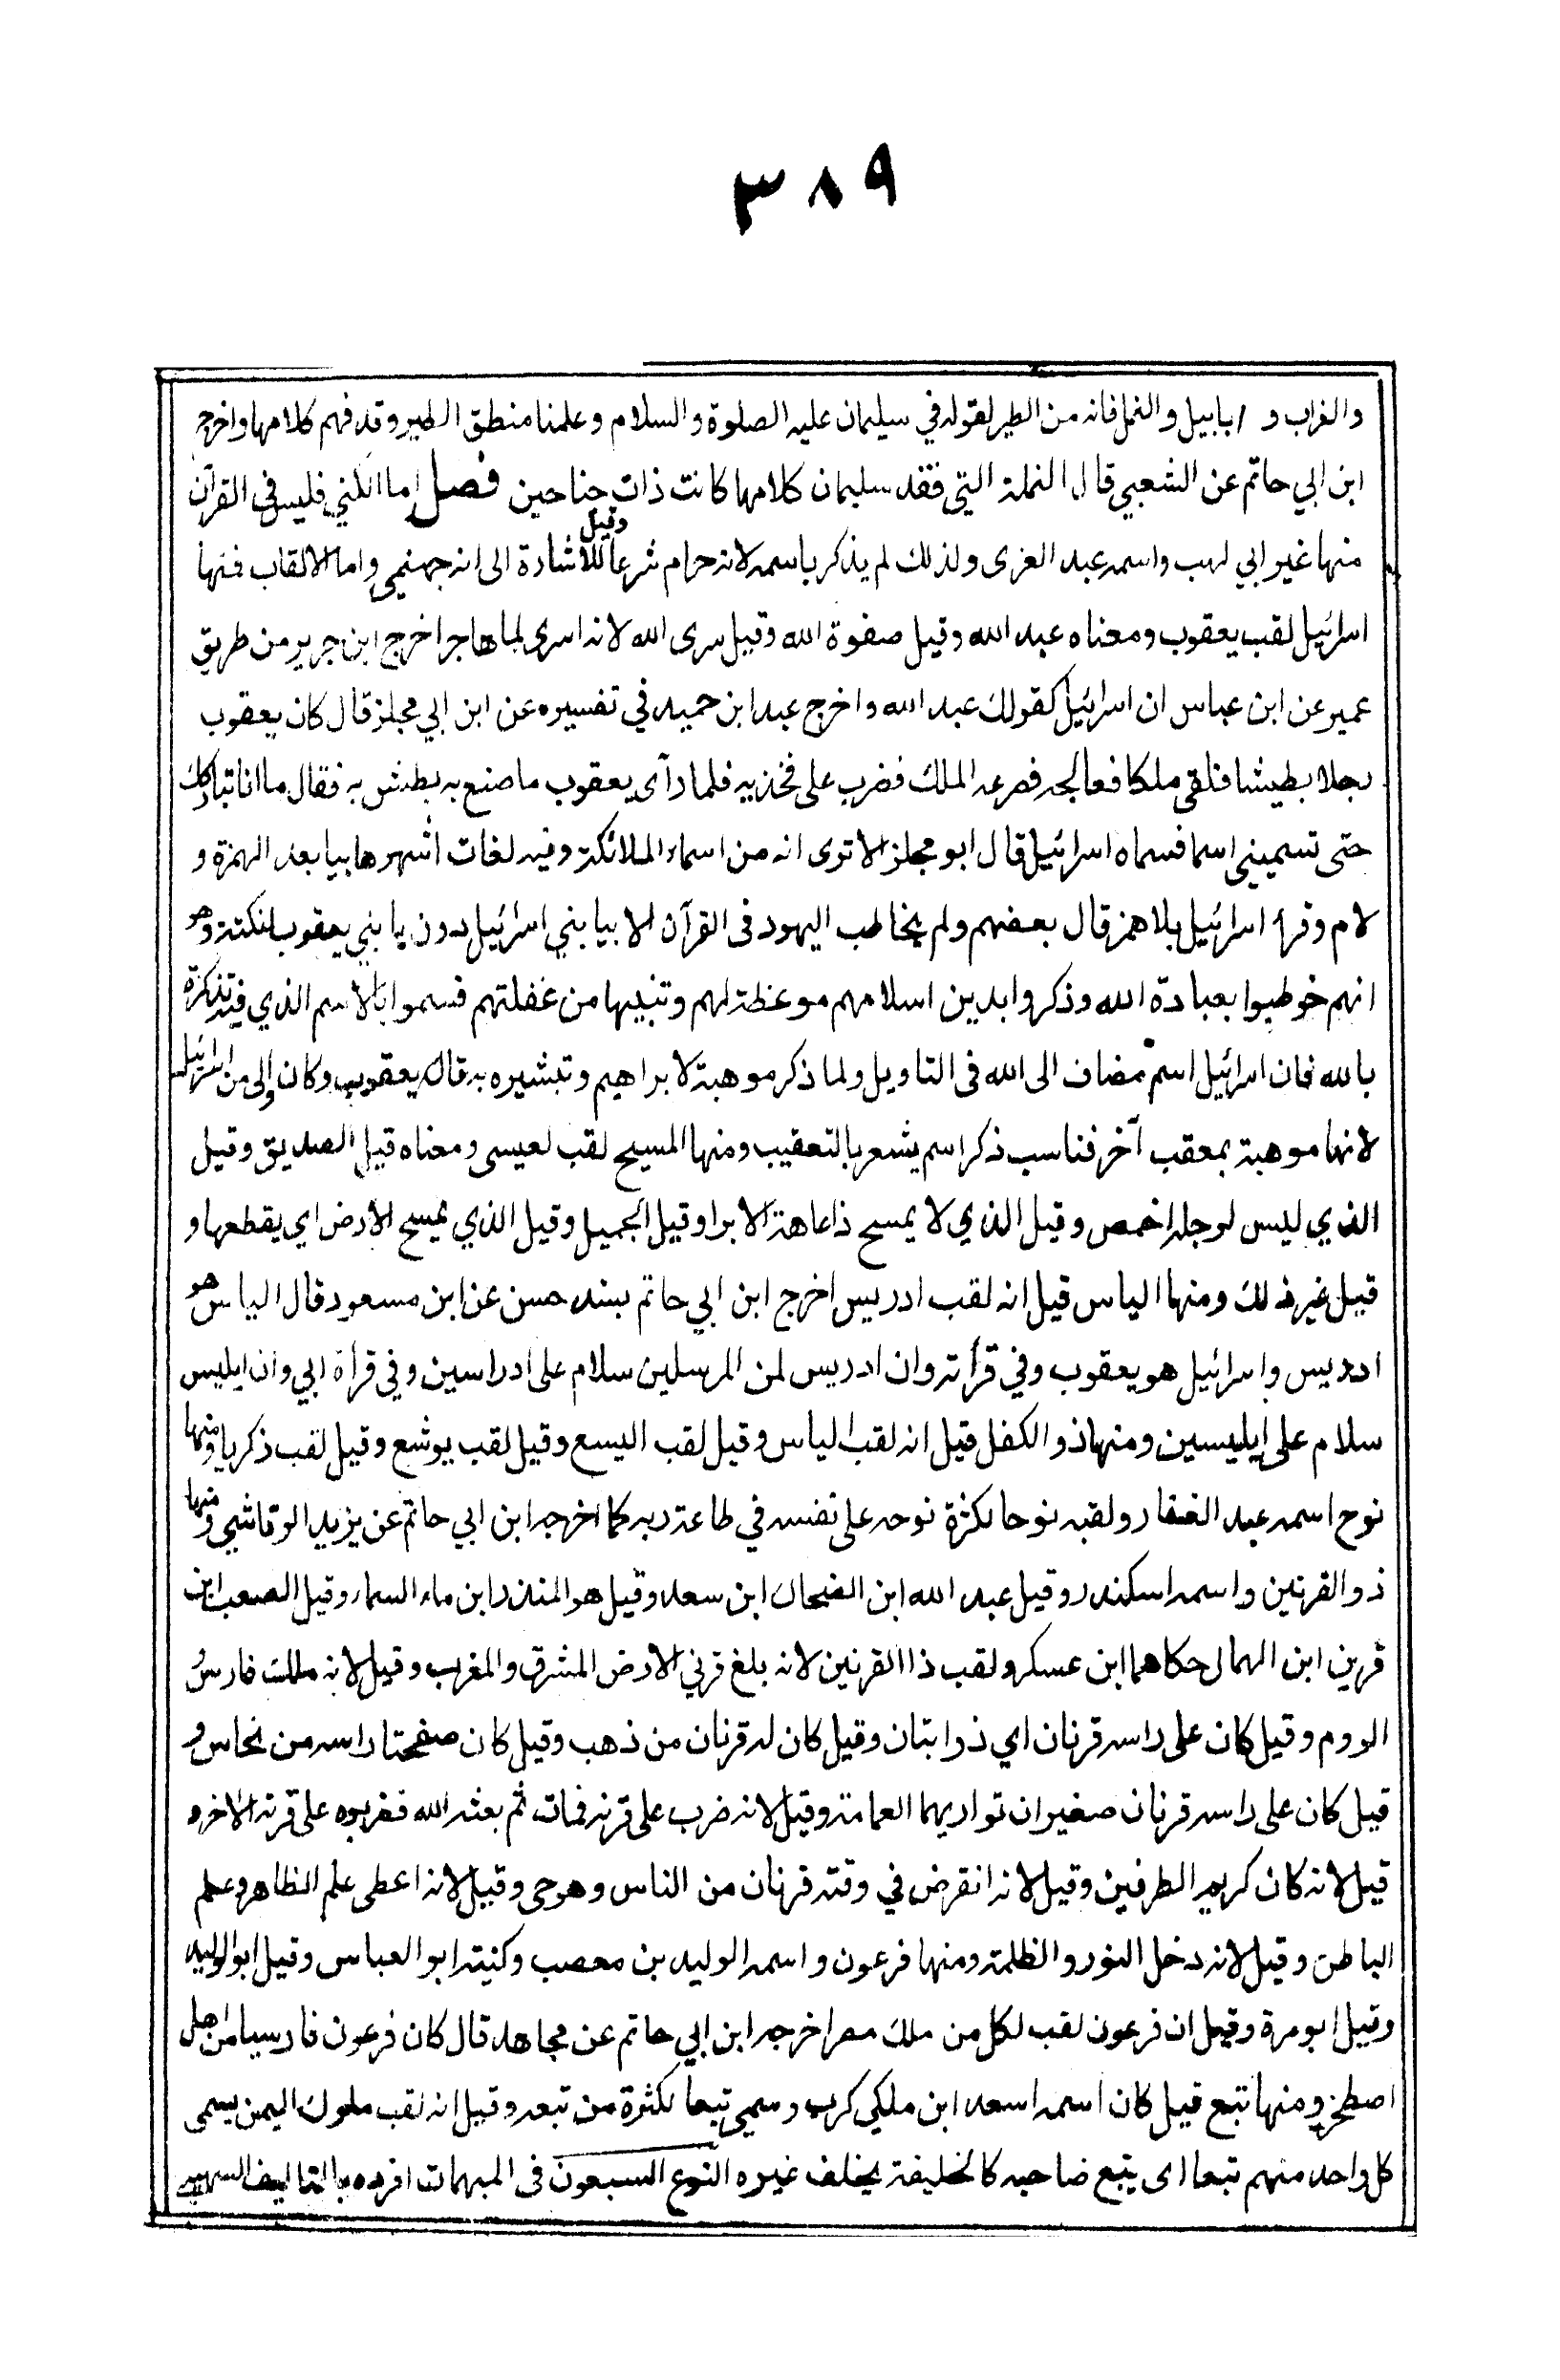 ٣٨٩
والغراب و ابابيل والنمل فانه من الطير لقوله في سليمان عليه الصلوة والسلام وعلمنا منطق الطير وقد فهم كلامها واخرج
ابن ابي حاتم عن الشعبي قال النملة التي فقه سليمان كلامها كانت ذات جناحين فصل اما الكني فليس في القرآن
منها غير ابي لهب واسمه عبد العزى ولذلك لم يذكر باسمه لانه حرام شرعا وقيل للاشارة الى انه جهنمي واما الالقاب فمنها
اسرائيل لقب يعقوب ومعناه عبد الله وقيل صفوة الله وقيل سرى الله لانه اسرى لما هاجر اخرج ابن جرير من طريق
عمير عن ابن عباس ان اسرائيل كقولك عبد الله واخرج عبد ابن حميد في تفسيره عن ابن ابي مجلز قال كان يعقوب
رجلا بطيشا فلقي ملكا فعالجه فصرعه الملك فضرب على فخذيه فلما رآى يعقوب ما صنع به بطش به فقال ما انا بتاركك
حتى تسميني اسما فسماه اسرائيل قال ابو مجلز الا ترى انه من اسماء الملائكة وفيه لغات اشهرها بيا بعد الهمزة و
لام وقرأ اسرائيل بلا همز قال بعضهم ولم يخاطب اليهود فى القرآن الا بيا بني اسرائيل دون يا بني يعقوب لنكتة وهو
انهم خوطبوا بعبادة الله وذكروا بدين اسلامهم موعظة لهم وتنبيها من غفلتهم فسموا بالاسم الذي فيه تذكرة
بالله فان اسرائيل اسم مضاف الى الله فى التاويل ولما ذكر موهبة لابراهيم وتبشيره به قال يعقوب وكان اولى من اسرائيل
لانها موهبة بمعقب آخر فناسب ذكر اسم يشعر بالتعقيب ومنها المسيح لقب لعيسى ومعناه قيل الصديق وقيل
الذي ليس لرجله اخمص وقيل الذي لا يمسح ذا عاهة الا برا وقيل الجميل وقيل الذي يمسح الارض اي يقطعها و
قيل غير ذلك ومنها الياس قيل انه لقب ادريس اخرج ابن ابي حاتم بسند حسن عن ابن مسعود قال الياس هو
ادريس واسرائيل هو يعقوب وفي قرأته وان ادريس لمن المرسلين سلام على ادراسين وفي قرأة ابي وان ايليس
سلام على ايليسين ومنها ذو الكفل قيل انه لقب الياس وقيل لقب اليسع وقيل لقب يوشع وقيل لقب ذكريا ومنها
نوح اسمه عبد الغفار ولقبه نوحا لكثرة نوحه على نفسه في طاعة ربه كما اخرجه ابن ابي حاتم عن يزيد الرقاشي ومنها
ذو القرنين واسمه اسكندر وقيل عبد الله ابن الضحاك ابن سعد وقيل هو المنذر ابن ماء السماء وقيل الصعب ابن
قرين ابن الهمال حكاهما ابن عسكر ولقب ذا القرنين لانه بلغ قرني الارض المشرق والمغرب وقيل لانه ملك فارس و
الروم وقيل كان على راسه قرنان اي ذوابتان وقيل كان له قرنان من ذهب وقيل كان صفحتا راسه من نحاس و
قيل كان على راسه قرنان صغيران تواريهما العمامة وقيل لانه ضرب على قرنه فمات ثم بعثه الله فضربوه على قرنه الاخر و
قيل لانه كان كريم الطرفين وقيل لانه انقرض في وقته قرنان من الناس وهو حي وقيل لانه اعطى علم الظاهر وعلم
الباطن وقيل لانه دخل النور والظلمة ومنها فرعون واسمه الوليد بن معصب وكنيته ابو العباس وقيل ابو الوليد
وقيل ابو مرة وقيل ان فرعون لقب لكل من ملك مصر اخرجه ابن ابي حاتم عن مجاهد قال كان فرعون فارسيا من اهل
اصطخر ومنها تبع قيل كان اسمه اسعد ابن ملكي كرب وسمي تبعا لكثرة من تبعه وقيل انه لقب ملوك اليمن يسمى
كل واحد منهم تبعا اى يتبع صاحبه كالخليفة يخلف غيره النوع السبعون فى المبهمات افرده بالتاليف السهيلي